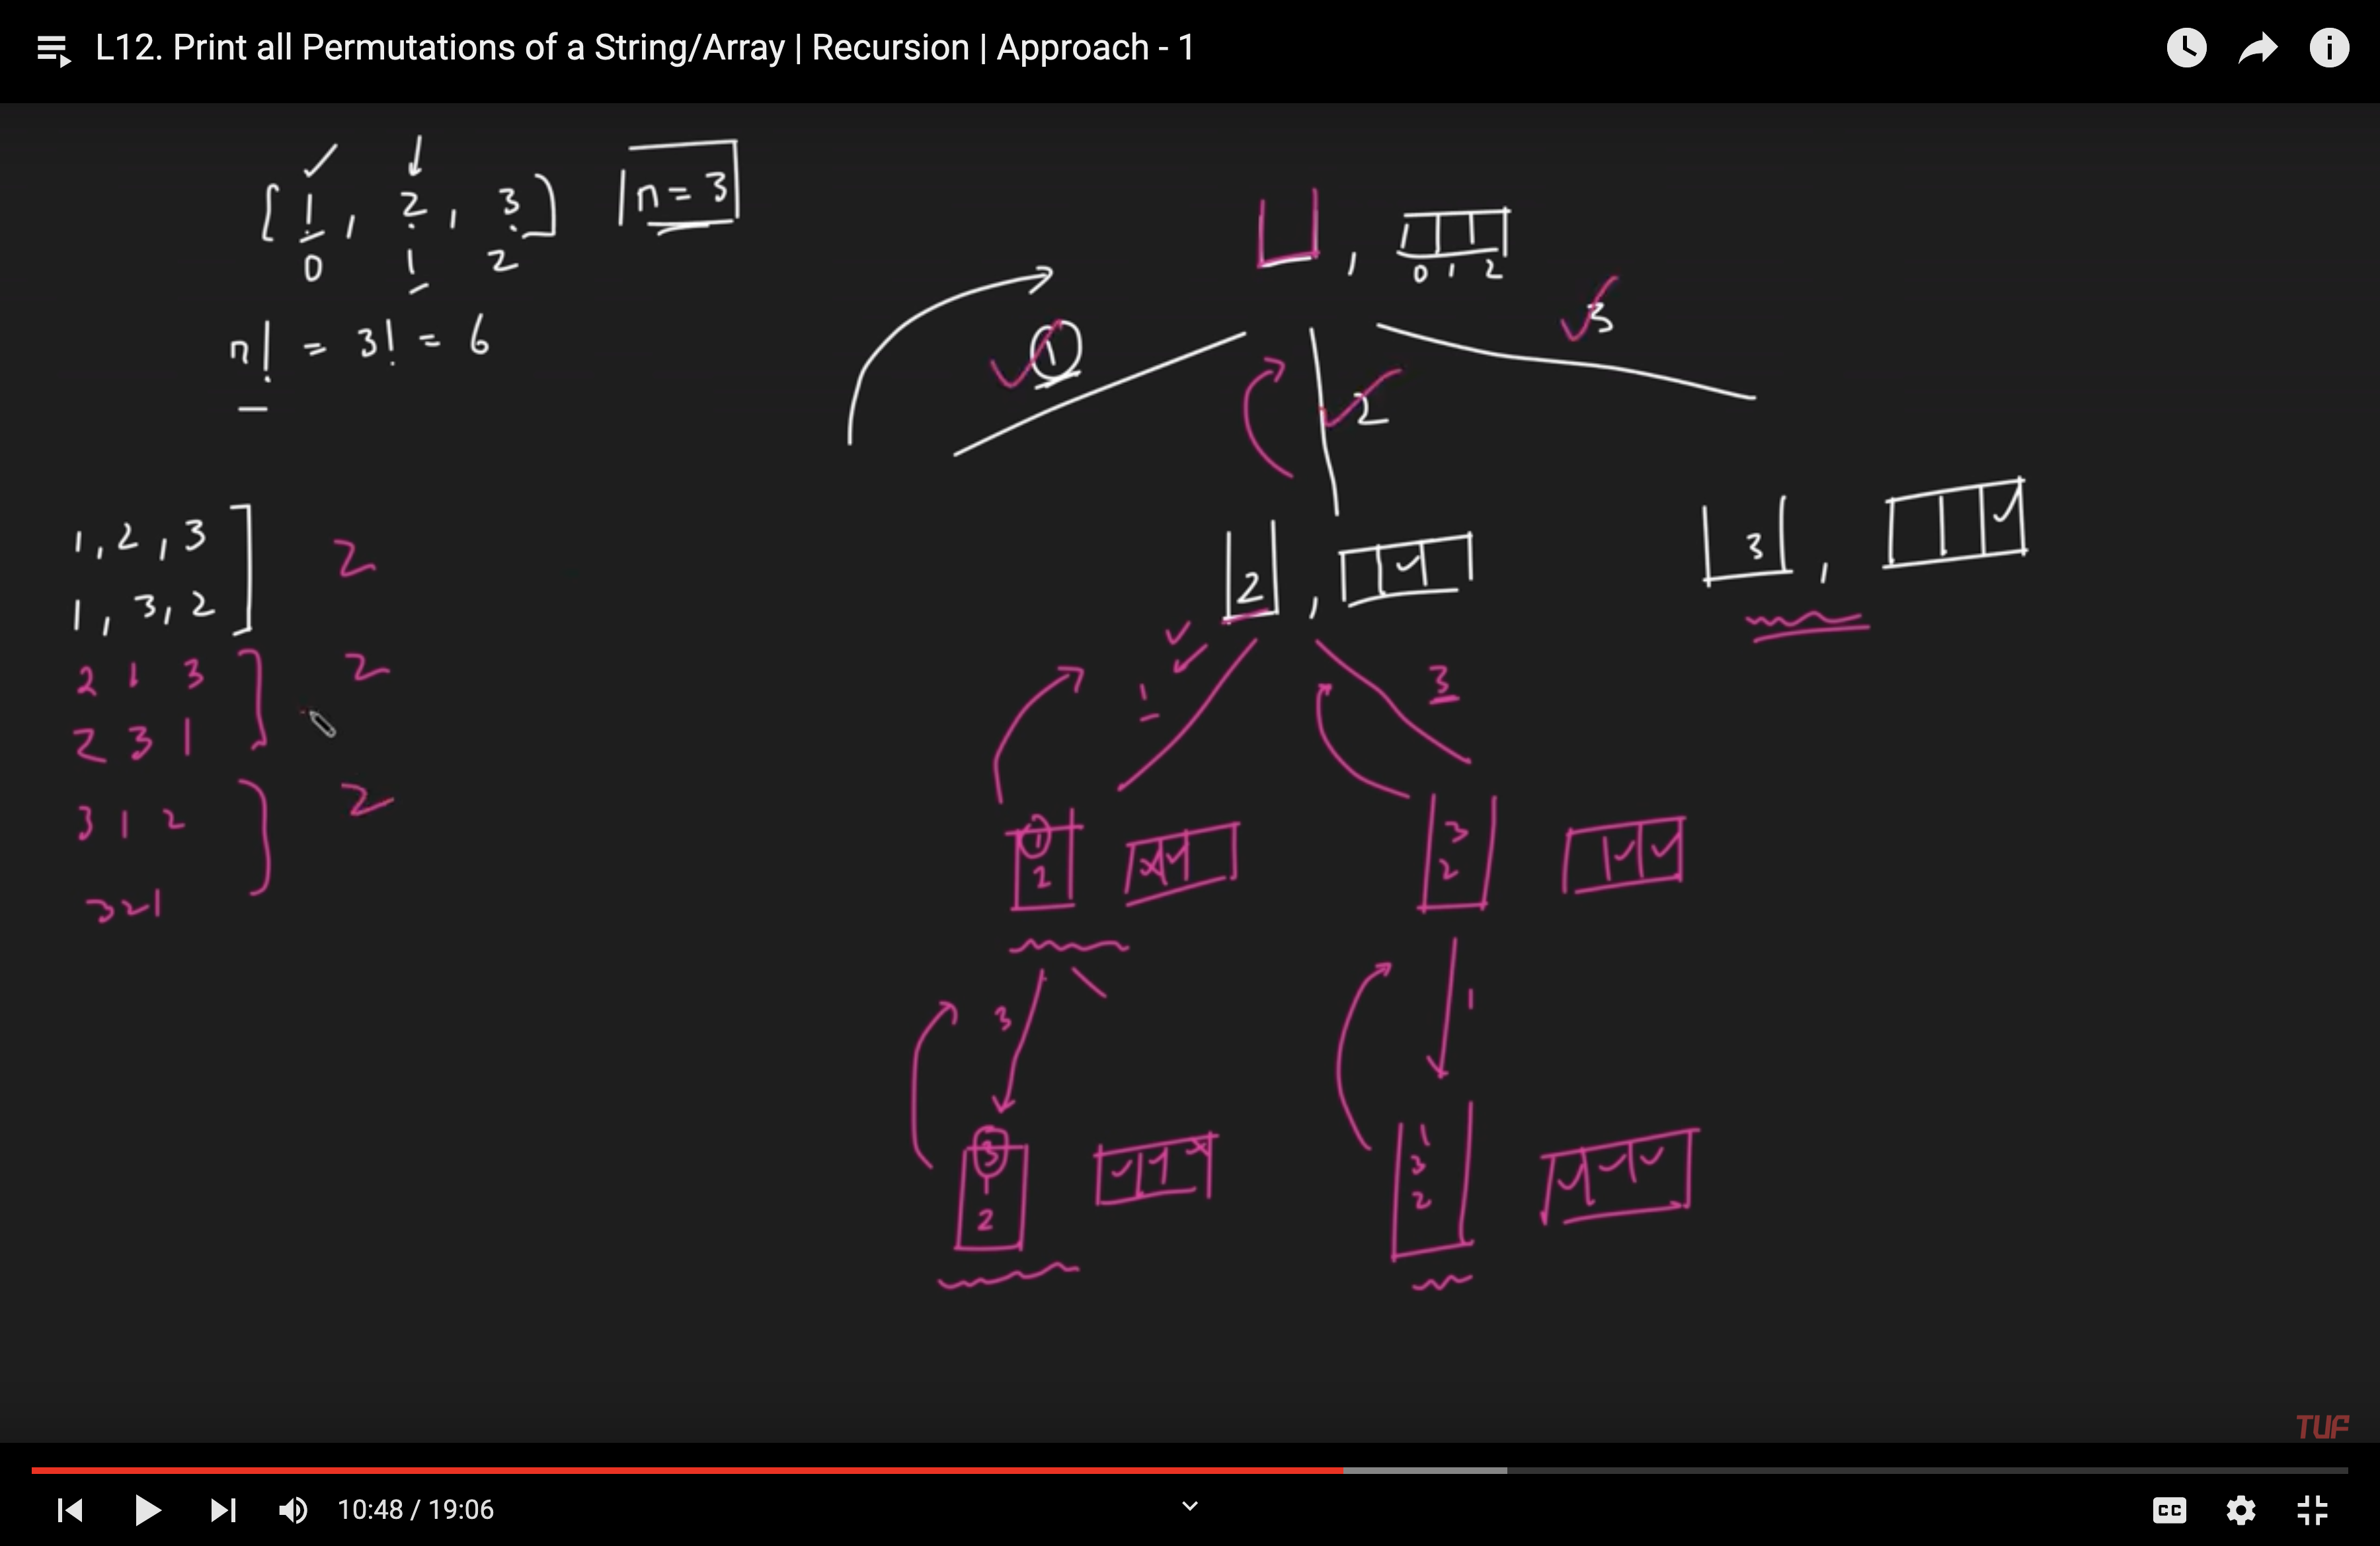 L12. Print all Permutations of a String/Array | Recursion | Approach - 1
[1, 2, 3] n = 3
0 1 2
n! = 3! = 6
1, 2, 3 ] 2
1, 3, 2
2 1 3 ] 2
2 3 1
3 1 2 } 2
3 2 1
,
0 1 2
1
2
3
2 ,
3 ,
1
3
1
2
3
2
3
1
3
1
2
1
3
2
TUF
10:48 / 19:06
CC